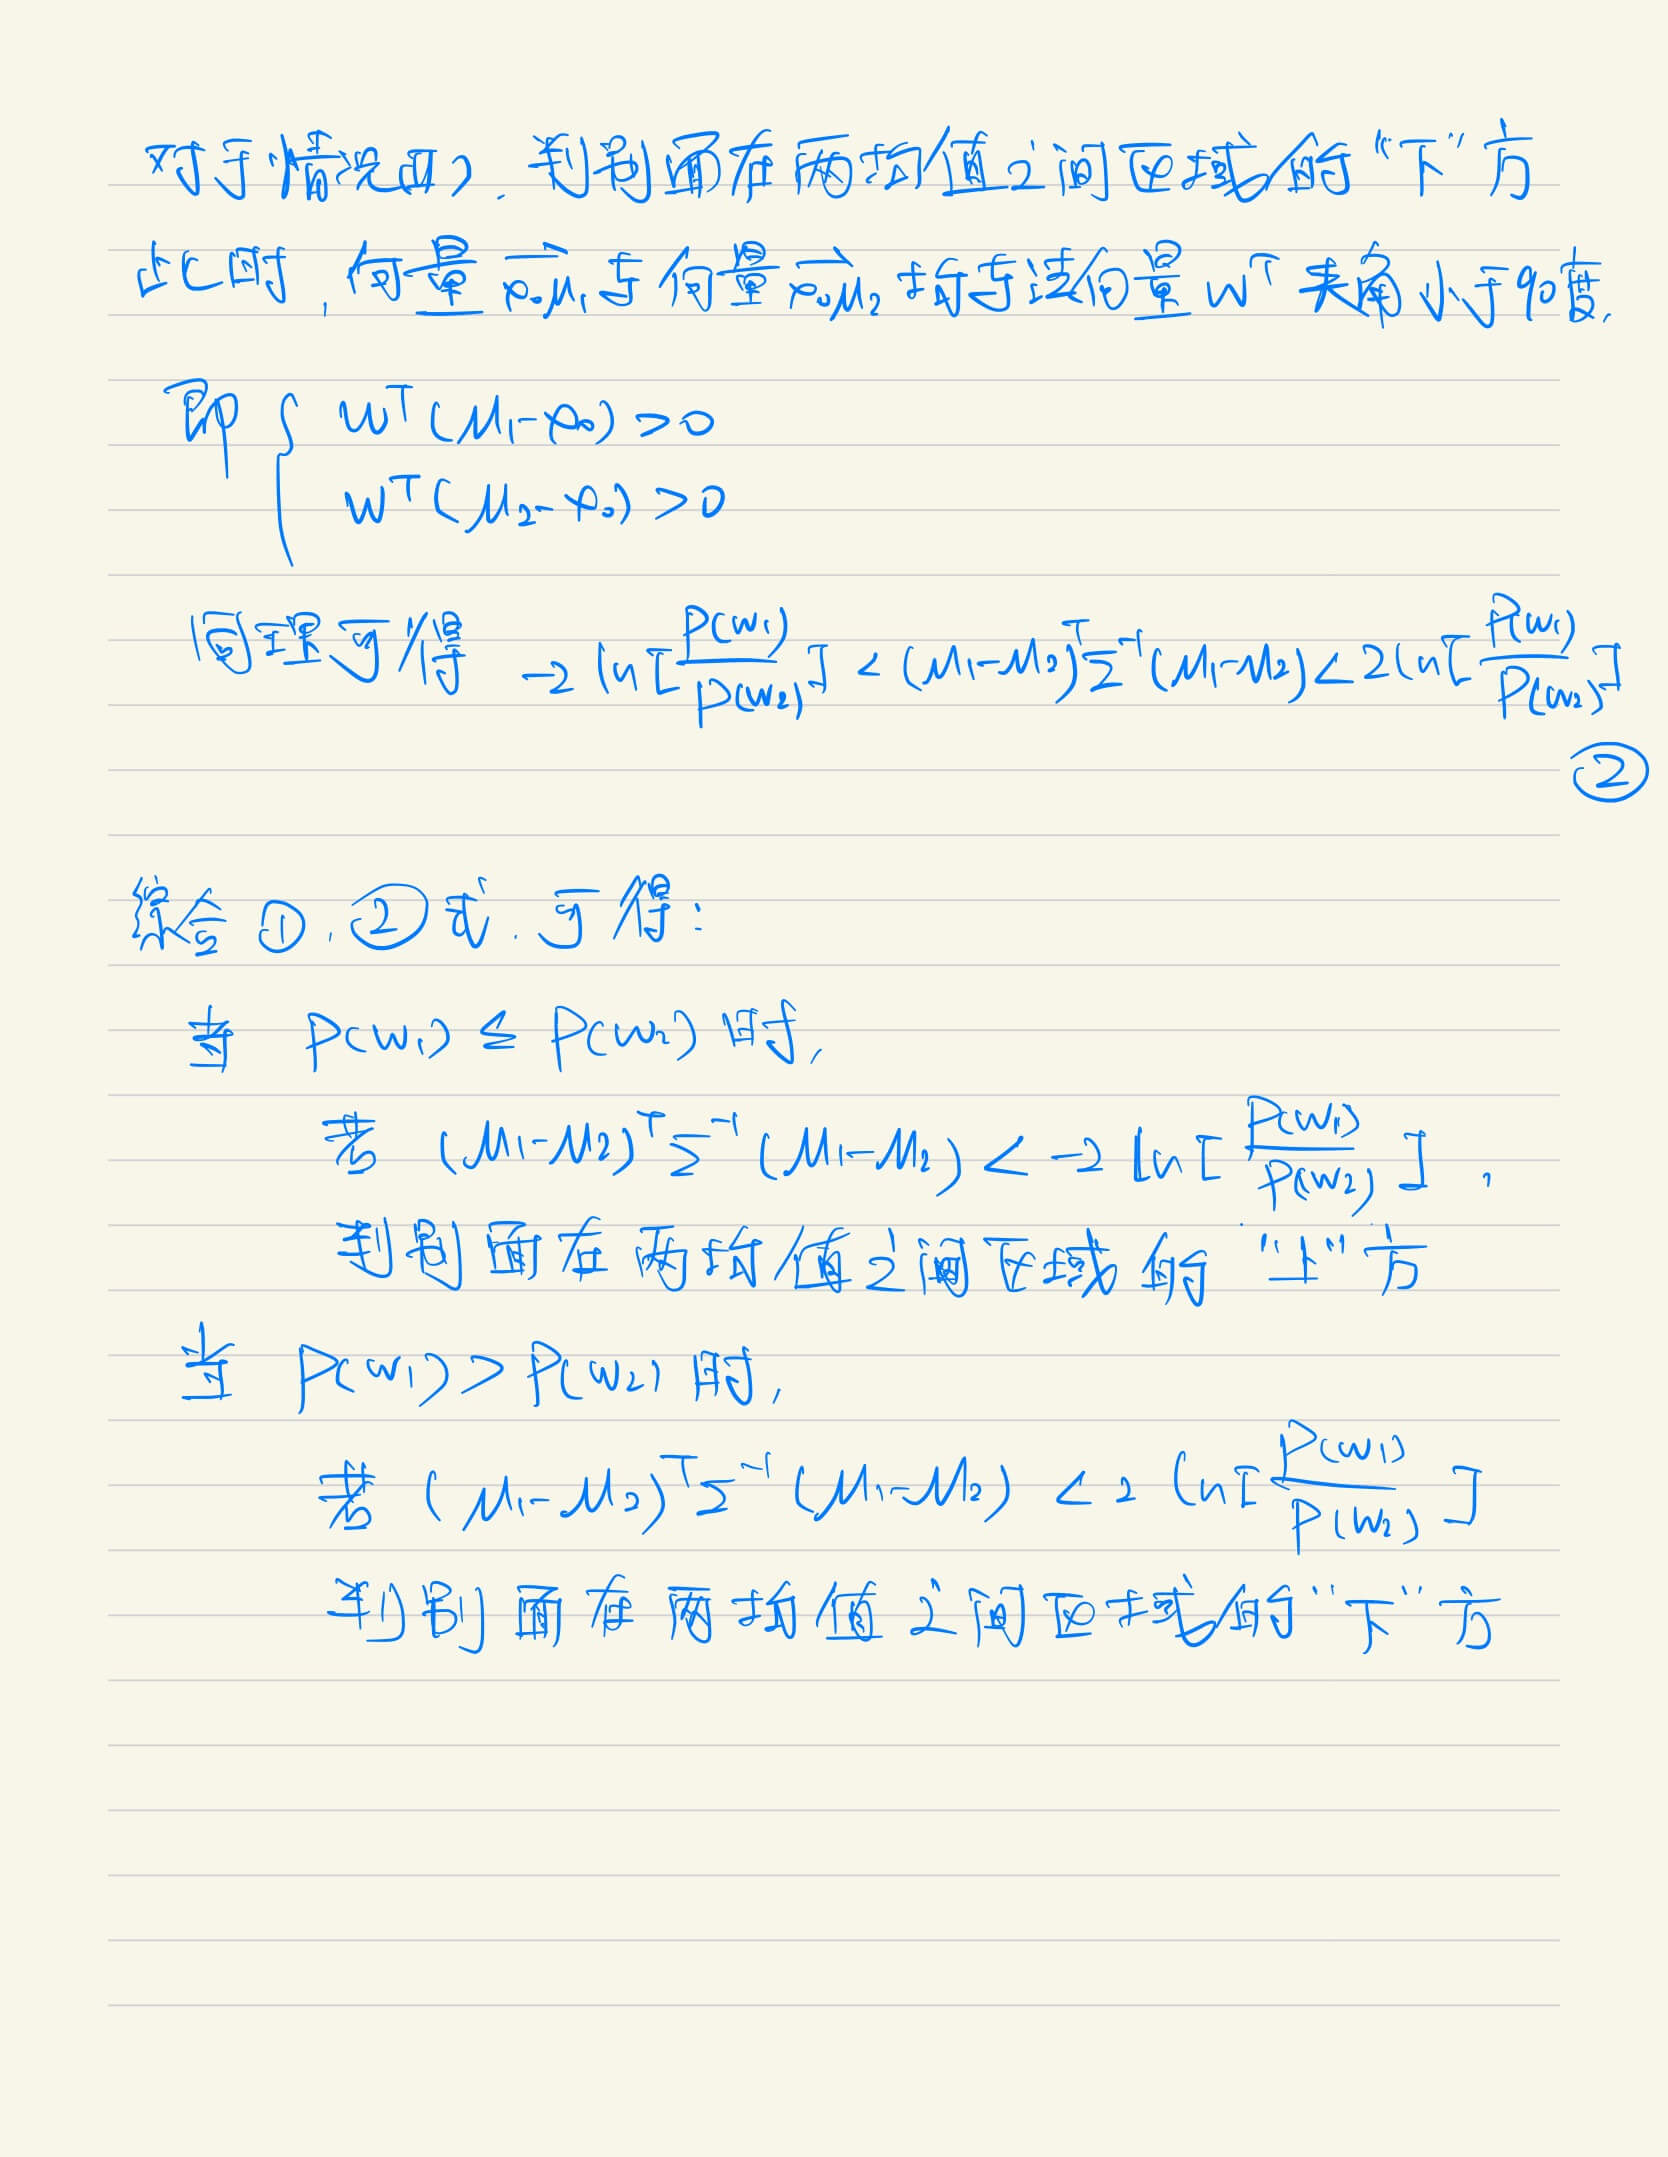 对于情况(II),判别面在两均值之间区域的“下”方
此时,向量 $\overrightarrow{x_0\mu_1}$ 与向量 $\overrightarrow{x_0\mu_2}$ 均与法向量 $w^T$ 夹角小于90度.
即 { $w^T(\mu_1-x_0)>0$
$w^T(\mu_2-x_0)>0$
同理可得 $-2\ln[\frac{P(w_1)}{P(w_2)}]<(\mu_1-\mu_2)^T\Sigma^{-1}(\mu_1-\mu_2)<2\ln[\frac{P(w_1)}{P(w_2)}]$
②
综合①,②式,可得:
当 $P(w_1)\leq P(w_2)$ 时,
若 $(\mu_1-\mu_2)^T\Sigma^{-1}(\mu_1-\mu_2)<-2\ln[\frac{P(w_1)}{P(w_2)}]$ ,
判别面在两均值之间区域的“上”方
当 $P(w_1)>P(w_2)$ 时,
若 $(\mu_1-\mu_2)^T\Sigma^{-1}(\mu_1-\mu_2)<2\ln[\frac{P(w_1)}{P(w_2)}]$
判别面在两均值之间区域的“下”方